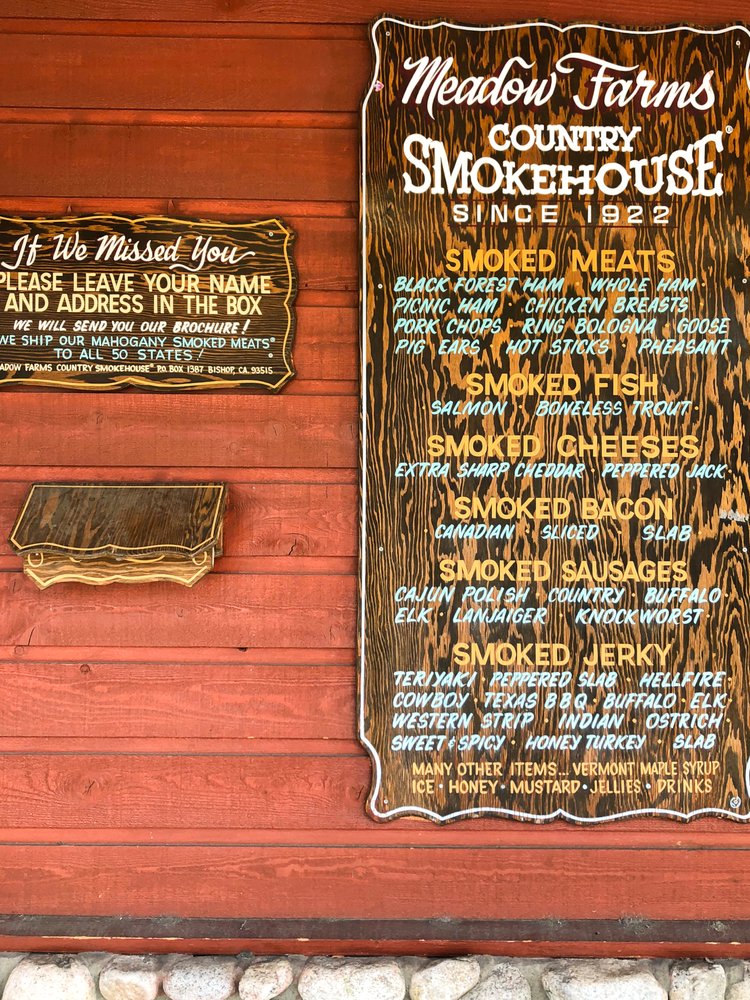 If We Missed You
PLEASE LEAVE YOUR NAME
AND ADDRESS IN THE BOX
WE WILL SEND YOU OUR BROCHURE!
WE SHIP OUR MAHOGANY SMOKED MEATS®
TO ALL 50 STATES!
ADOW FARMS COUNTRY SMOKEHOUSE® P.O. BOX 1387 BISHOP, CA. 93515
Meadow Farms
COUNTRY
SMOKEHOUSE®
SINCE 1922
SMOKED MEATS
BLACK FOREST HAM · WHOLE HAM ·
PICNIC HAM · CHICKEN BREASTS
PORK CHOPS · RING BOLOGNA · GOOSE
PIG EARS · HOT STICKS · PHEASANT
SMOKED FISH
SALMON · BONELESS TROUT ·
SMOKED CHEESES
EXTRA SHARP CHEDDAR · PEPPERED JACK
SMOKED BACON
CANADIAN · SLICED · SLAB
SMOKED SAUSAGES
CAJUN POLISH · COUNTRY · BUFFALO ·
ELK · LANJAIGER · KNOCKWORST
SMOKED JERKY
TERIYAKI · PEPPERED SLAB · HELLFIRE ·
COWBOY · TEXAS BBQ · BUFFALO · ELK
WESTERN STRIP · INDIAN · OSTRICH
SWEET & SPICY · HONEY TURKEY · SLAB
MANY OTHER ITEMS... VERMONT MAPLE SYRUP
ICE · HONEY · MUSTARD · JELLIES · DRINKS